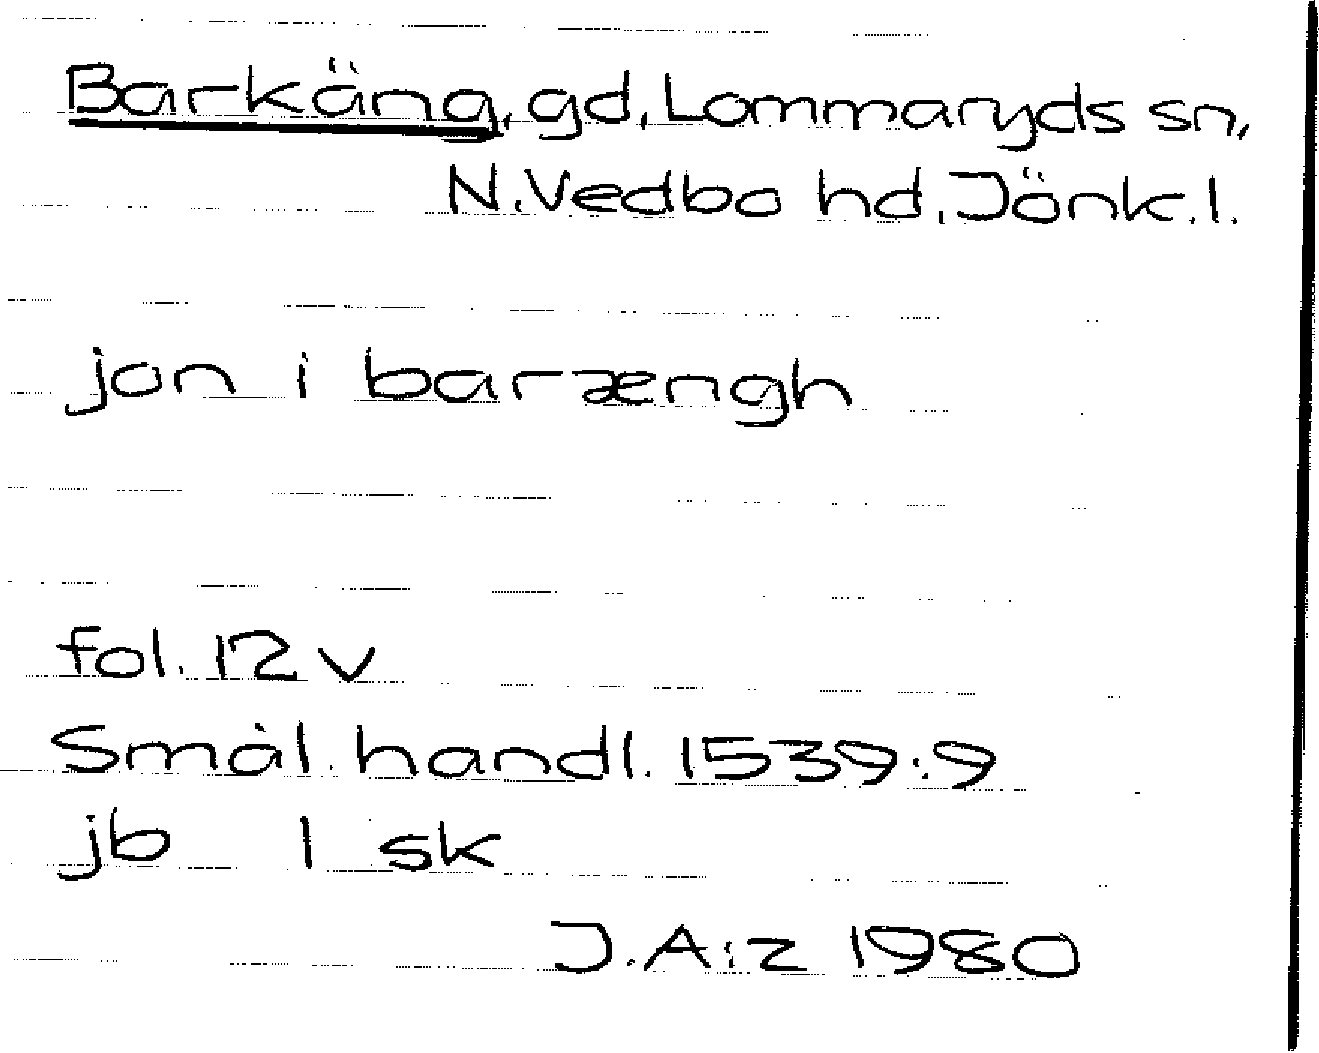 Barkäng, gd, Lommaryds sn,
N. Vedbo hd, Jönk. l.
jon i baræengh
fol. 12 v
Smål. handl. 1539:9
jb 1 sk
J.A:z 1980